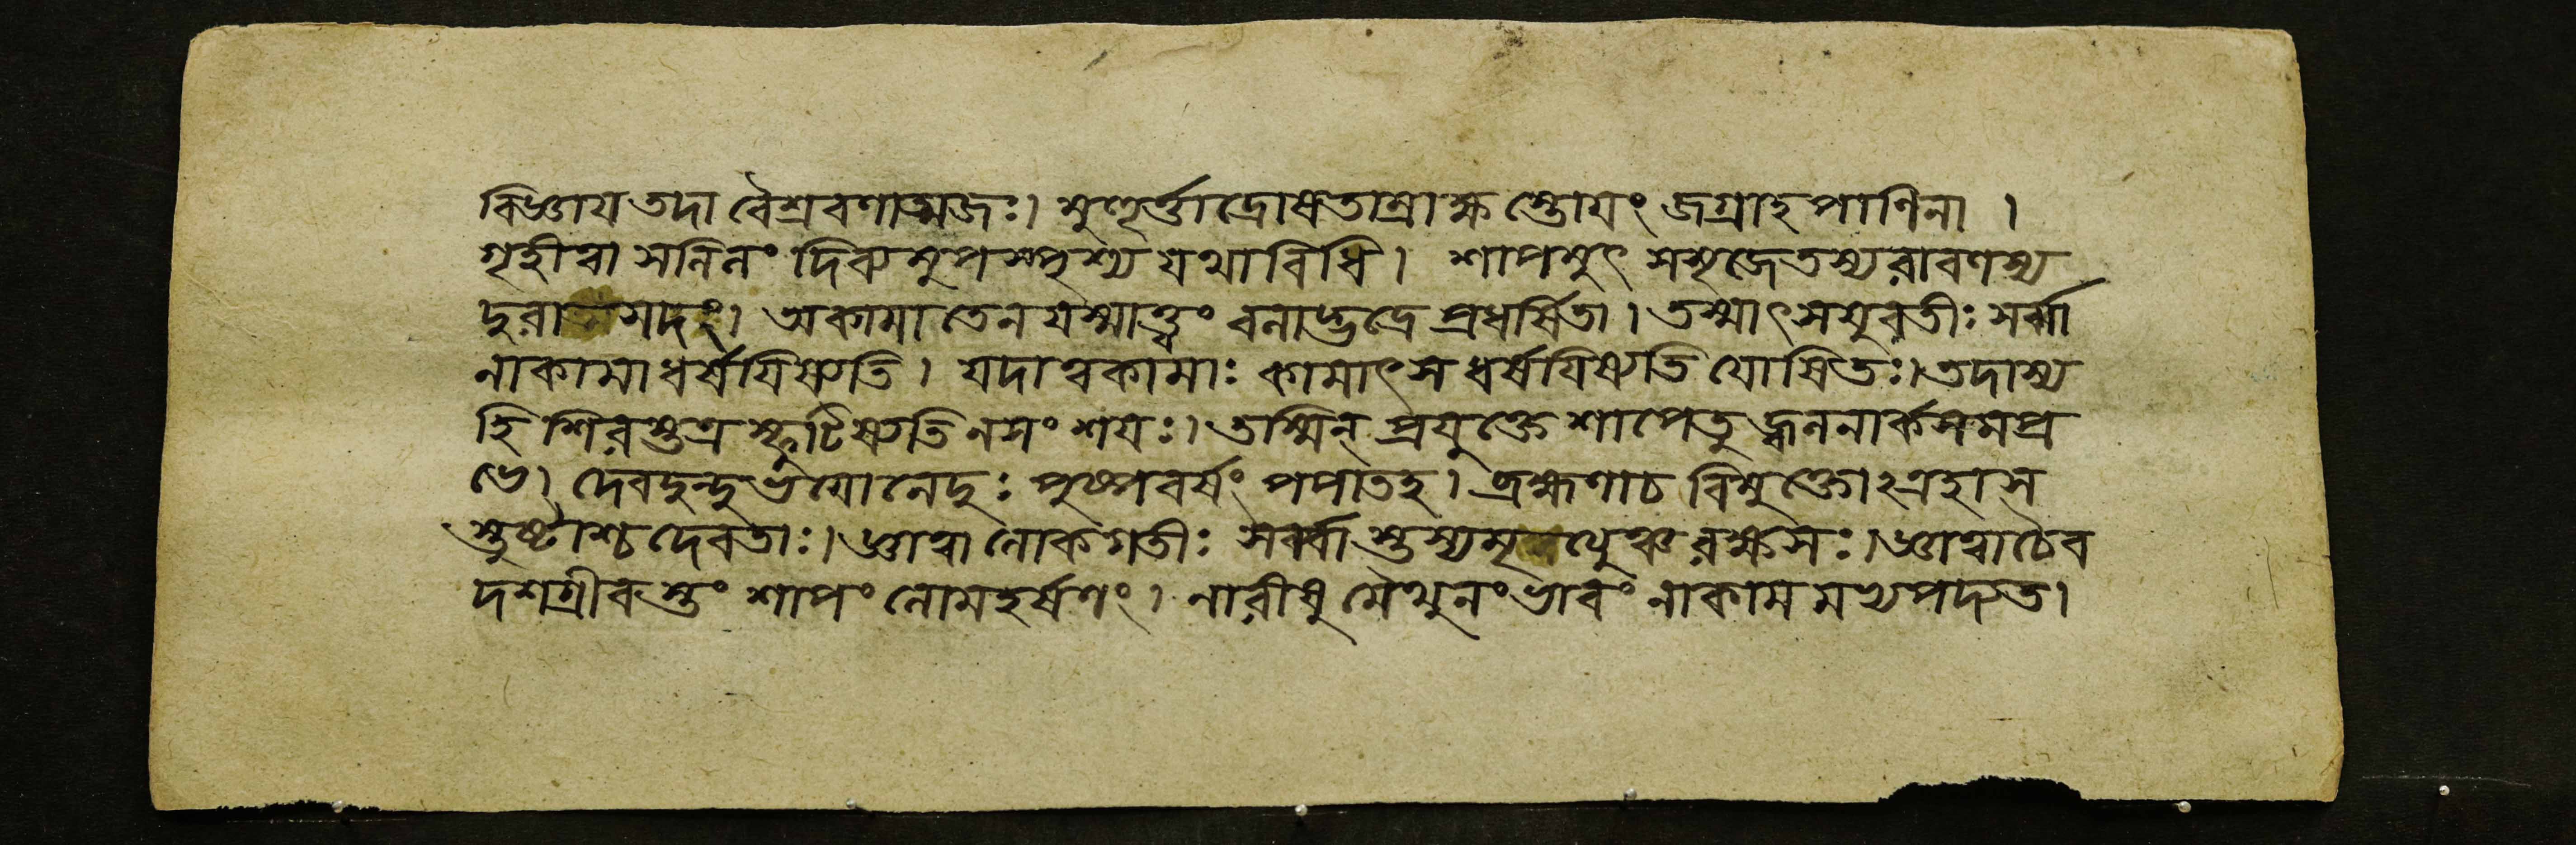 বিজ্ঞায তদা বৈশ্রবণাত্মজঃ। মুহূর্ত্তাদ্রোষতাম্রাক্ষস্তোযং জগ্রাহ পাণিনা ।
গৃহীত্বা সলিলং দিব্যমুপস্পৃশ্য যথাবিধি। শাপমুৎ সসৃজে তস্য ৰাবণস্য
দুৰা মদং। অকামা তেন যস্মাত্ত্বং বলাদ্ভদ্রে প্রধর্ষিতা। তস্মাৎ স যুবতীঃ সর্ব্বা
নাকামা ধর্ষযিষ্যতি। যদা ত্বকামাঃ কামাৎ স ধর্ষযিষ্যতি যোষিতঃ। তদাস্য
হি শিৰস্তত্র স্ফুটিষ্যতি ন সংশযঃ। তস্মিন্ প্রযুক্তে শাপে তু জ্বলনার্কসমপ্র
ভে। দেবদুন্দুভযো নেদুঃ পুষ্পবর্ষং পপাত হ। ব্রহ্মণা চ বিমুক্তোঽত্রহাস
স্তুষ্টাশ্চ দেবতাঃ। জ্ঞাত্বা লোকগতীঃ সর্ব্বাস্তস্য মৃ ত্যুঞ্চ ৰক্ষসঃ। জ্ঞাত্বা চৈব
দশগ্রীবস্তং শাপং লোমহর্ষণং। নাৰীষু মৈথুনং ভাবং নাকামমভ্যপদ্যত।